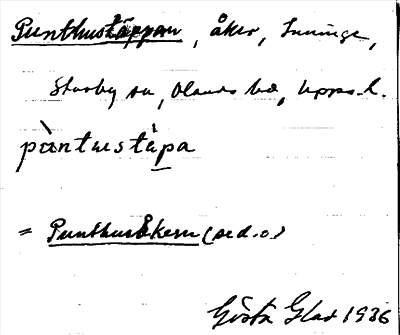 Punthustäppan, åker, Inninge,
Starby sn, Olands hd, Upps. l.
pàntustä̀pa
= Punthusåkern (sed. o.)
Gösta Glad 1936